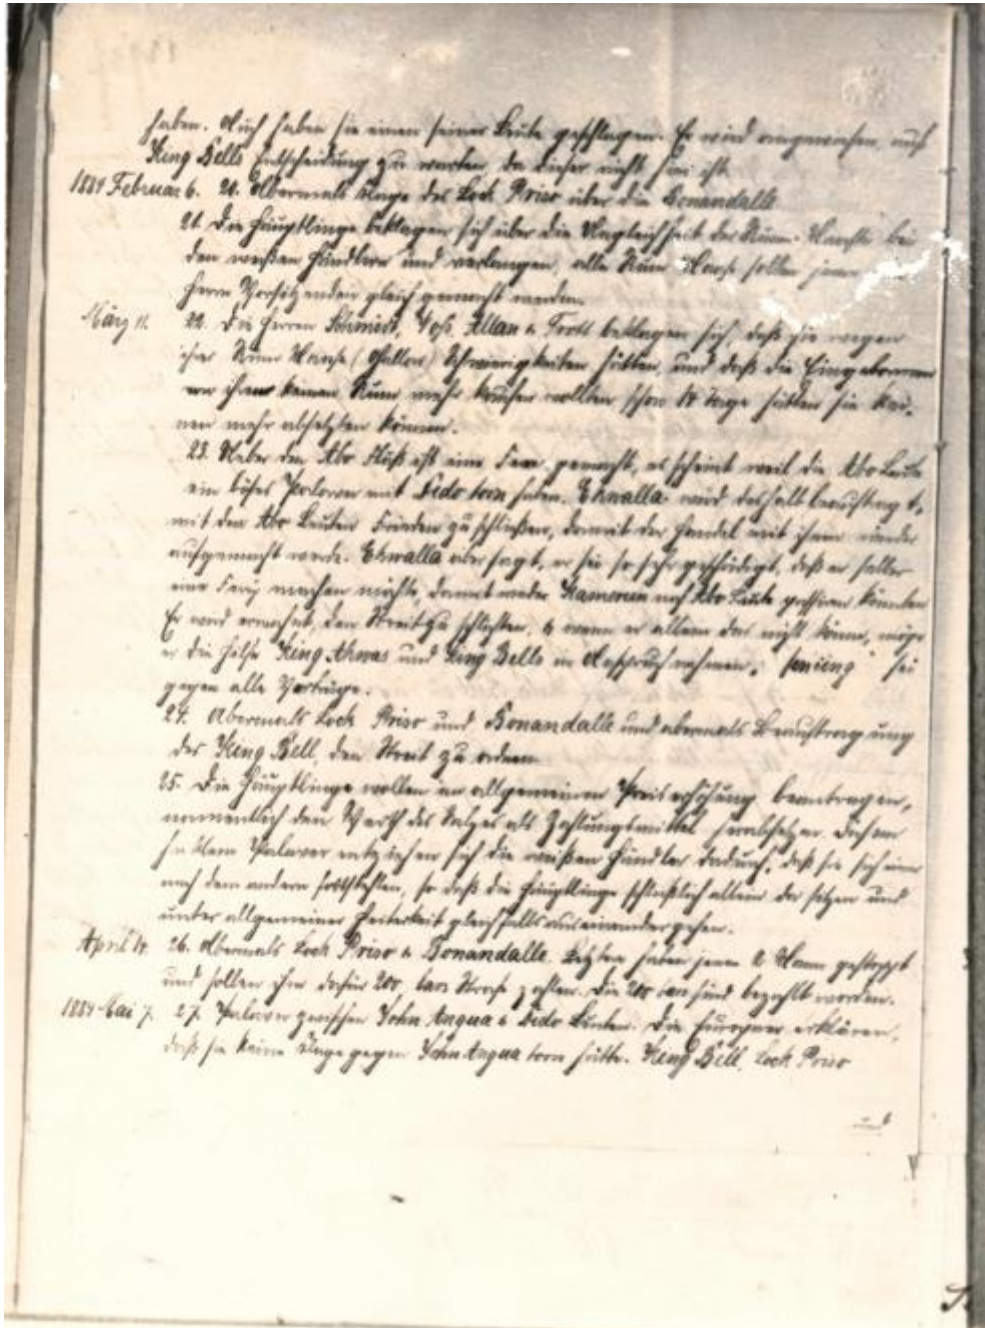 haben. Auch haben sie einen seiner Leute geschlagen. Er wird angewiesen, auf
King Bells Entscheidung zu warten, da dieser nicht hier ist.
1884 Februar 6. 20. Abermals Klage des Lock Priso über die Bonandalle
21. Die Häuptlinge beklagen sich über die Ungleichheit der Rum-
den weißen Händlern und verlangen, alle Rum sollen
Herrn Vorsitzenden gleich gemacht werden.
März 11. 22. Die Herren Schmidt, Allan & Trott beklagen sich, daß sie wegen
ihrer Rum (Gallon) Schwierigkeiten hätten, und daß die Eingeborenen
von ihnen keinen Rum mehr kaufen wollten schon 14 Tage hätten sie kei-
nen mehr absetzten können.
23. Ueber den Abo Fluß ist eine gemacht, es scheint weil die Abo Leute
ein böses Palaver mit Dido town haben. Ekwalla wird deshalb beauftragt,
mit den Abo Leuten Frieden zu schließen, damit der Handel mit ihnen wieder
aufgemacht werde. Ekwalla aber sagt, er sei so sehr geschädigt, daß er selber
eine machen möchte, damit weder Kamerun noch Abo Leute passiren könnten
Er wird ermahnt, den Streit zu schlichten, & wenn er allein das nicht könne, möge
er die Hilfe King Akwas und King Bells in Anspruch nehmen, sei
gegen alle Verträge.
24. Abermals Lock Priso und Bonandalle und abermals Beauftragung
des King Bell, den Streit zu ordnen.
25. Die Häuptlinge wollen en allgemeinen Preiserhöhung beantragen,
namentlich den Werth des Salzes als Zahlungsmittel herabsetzen. Diesem
Palaver entziehen sich die weißen Händler dadurch, daß sie sich einer
nach dem andern fortstehlen, so daß die Häuptlinge schließlich allein da sitzen und
unter allgemeiner Heiterkeit gleichfalls auseinandergehen.
April 14. 26. Abermals Lock Priso & Bonandalle. Letztere haben jenem 2 Mann gestoppt
und sollen ihm dafür 200 bars Strafe zahlen. Die 200 bars sind bezahlt worden.
1884 Mai 7. 27. Palaver zwischen John Angua & Dido Leuten. Die Europäer erklären,
daß sie keine Klage gegen John Angua town hätte. King Bell, Lock Priso
und